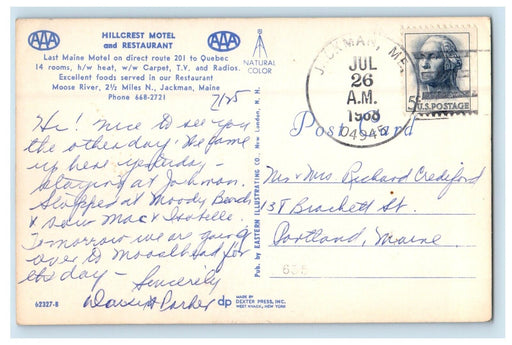 AAA
HILLCREST MOTEL
and RESTAURANT
AAA
Last Maine Motel on direct route 201 to Quebec
14 rooms, h/w heat, w/w Carpet, T.V. and Radios.
Excellent foods served in our Restaurant
Moose River, 2½ Miles N., Jackman, Maine
Phone 668-2721
NATURAL
COLOR
7/25
Hi! nice to see you
the other day! We came
up here yesterday -
staying at Jackman.
Stopped at Moody Beach
& saw Mac & Isabelle.
Tomorrow we are going
over to Moosehead for
the day -
Sincerely
Parker
62327-B
Pub. by EASTERN ILLUSTRATING CO., New London, N. H.
dp
MADE BY
DEXTER PRESS, INC.
WEST NYACK, NEW YORK
JACKMAN, ME
JUL
26
A.M.
1968
04945
5¢
U.S. POSTAGE
Post Card
Mr & Mrs Richard Crediford
138 Brackett St.
Portland, Maine
635